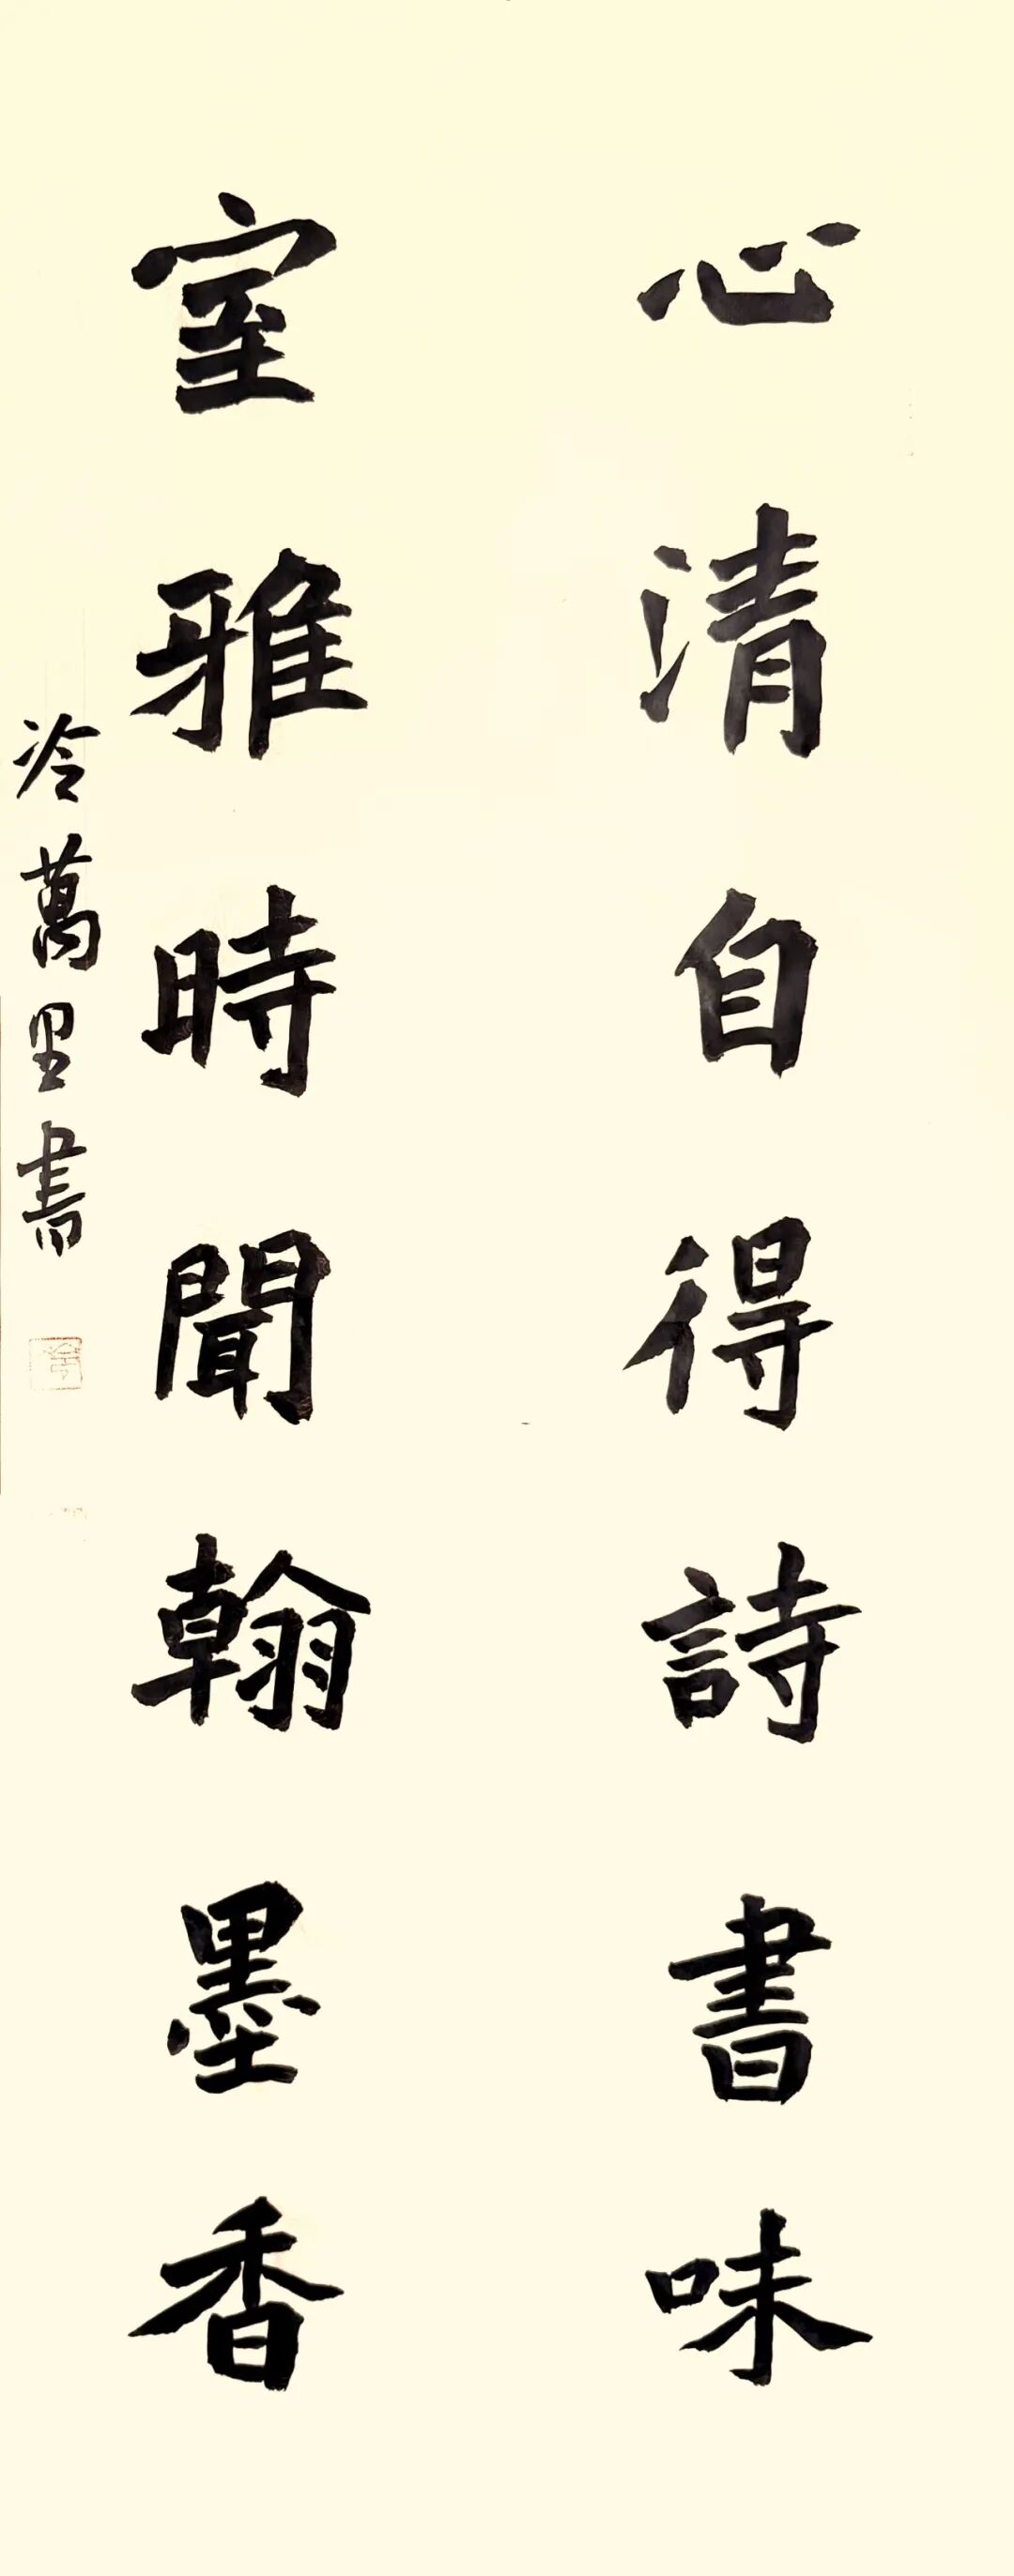 心清自得詩書味
室雅時聞翰墨香
冷萬里書